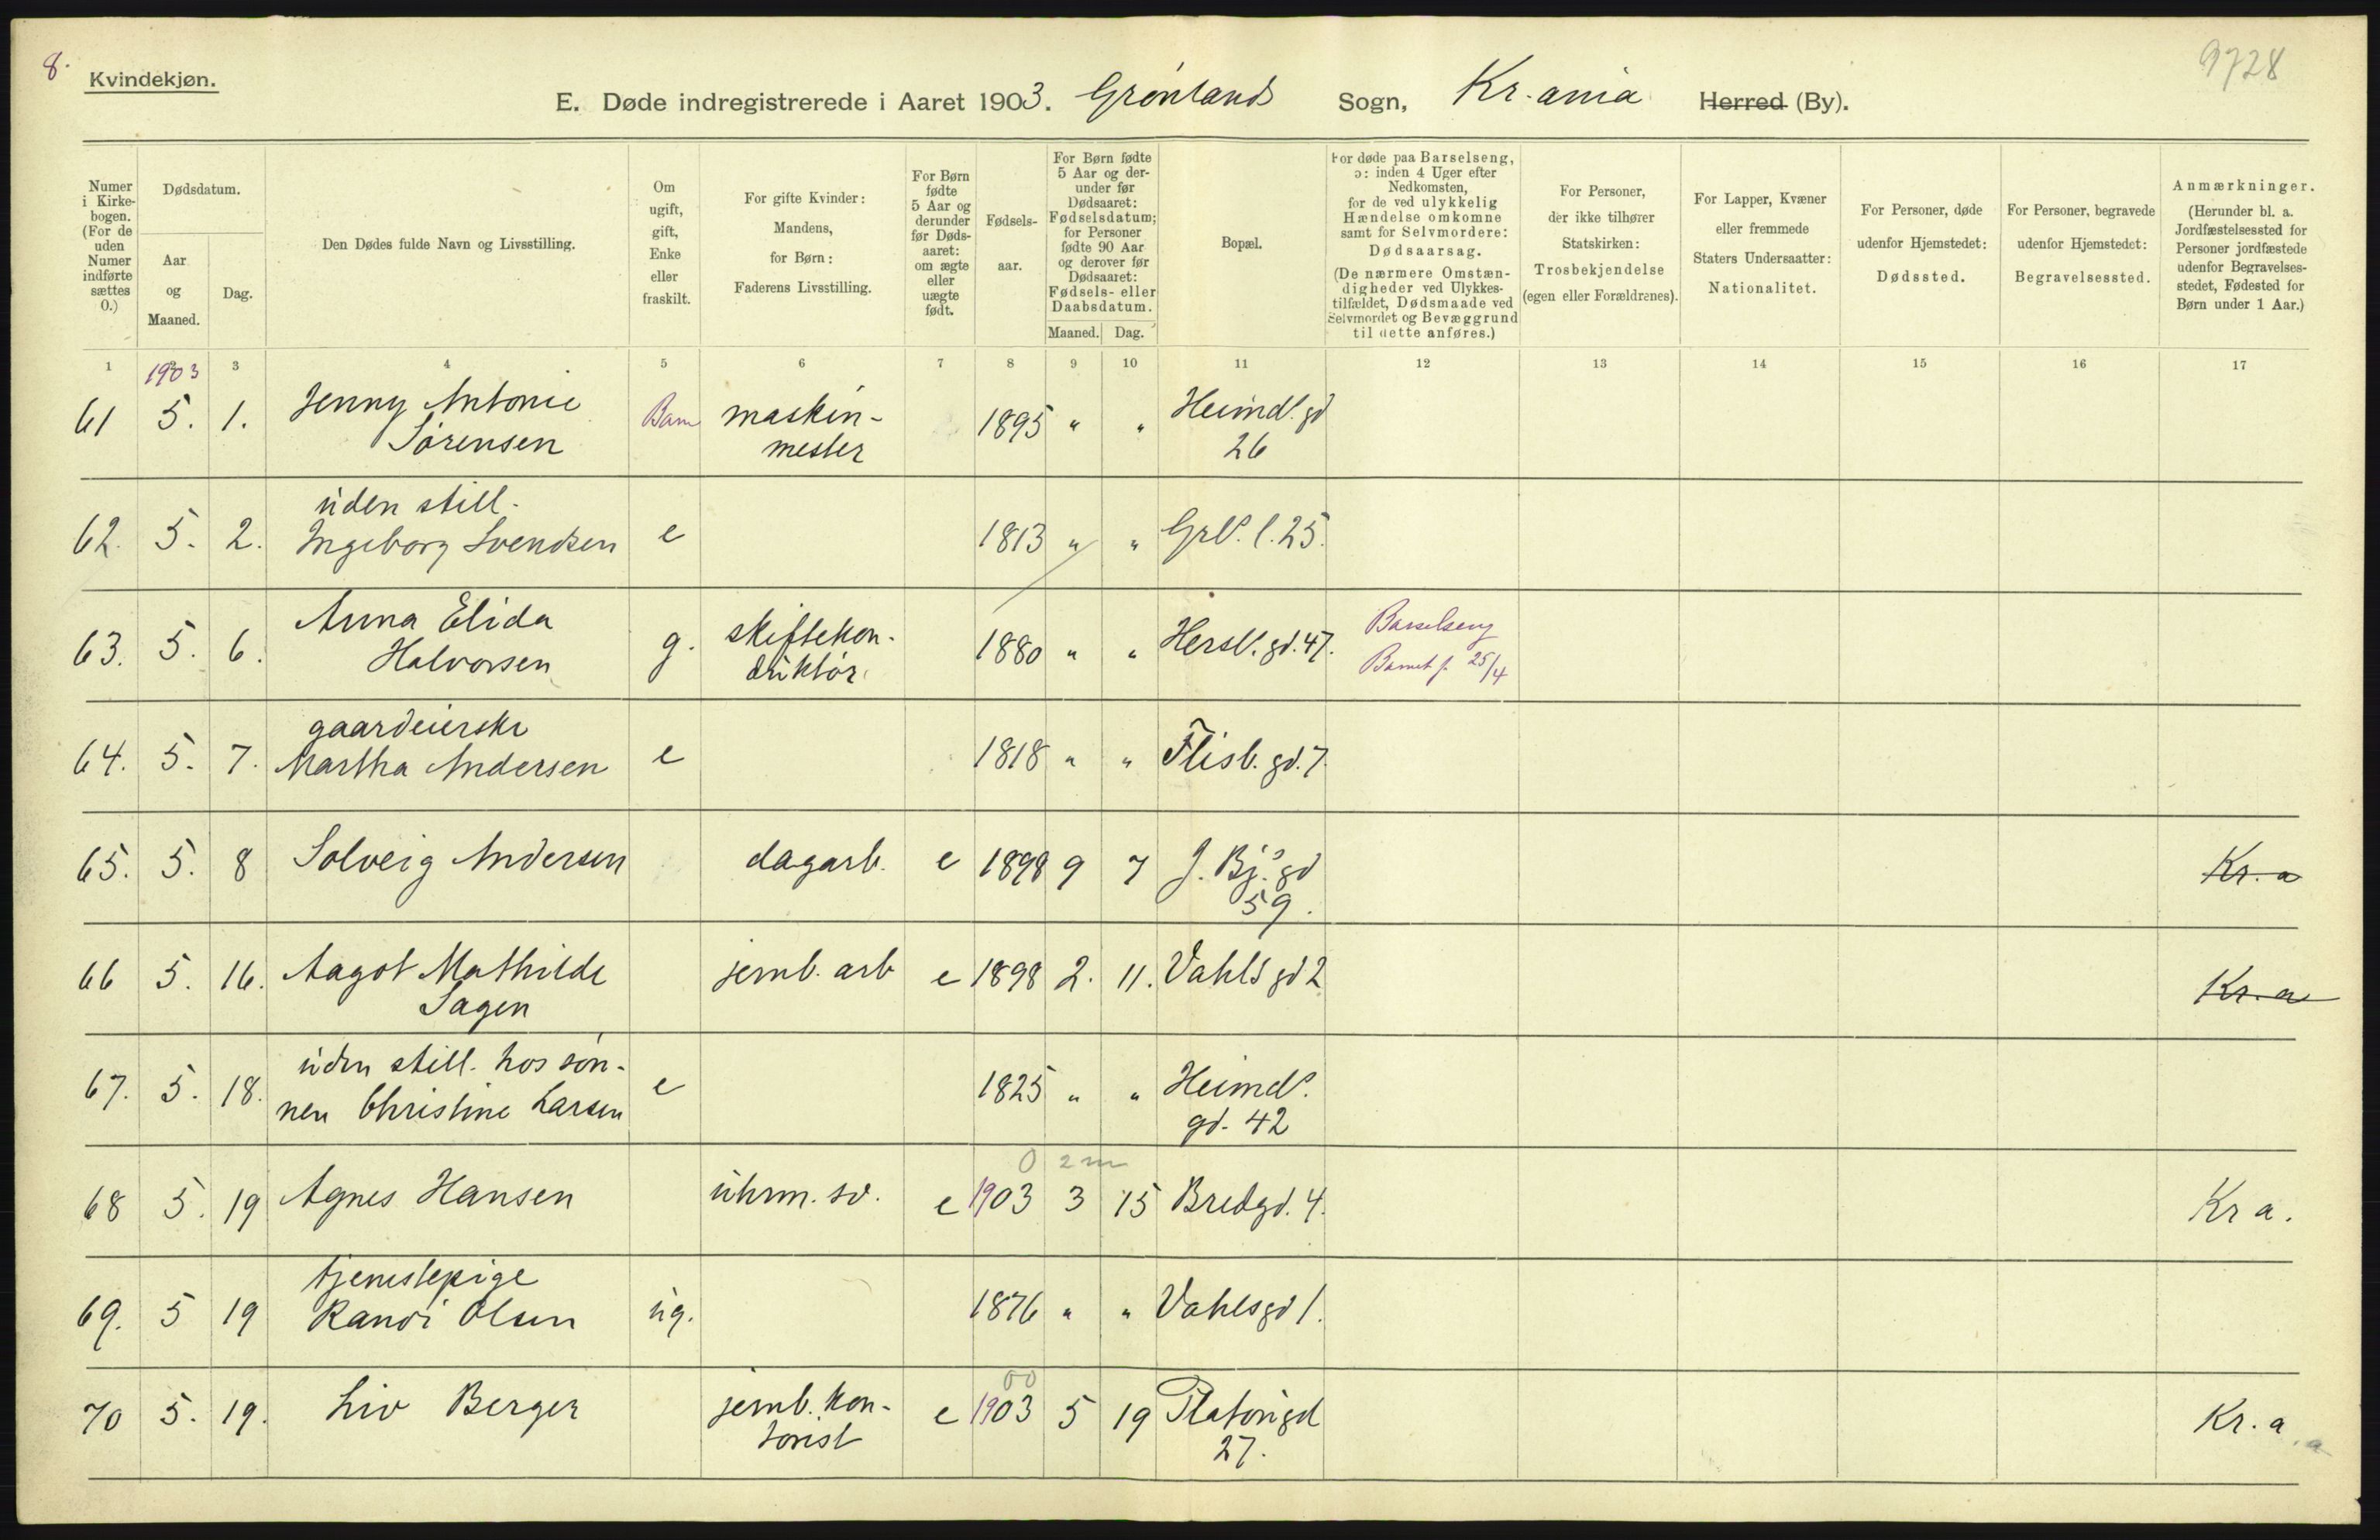 8.
Kvindekjøn.
9728
E. Døde indregistrerede i Aaret 1903. Grønlands Sogn, Kr.ania Herred (By).
Numer i Kirkebogen. (For de uden Numer indførte sættes 0.)
Dødsdatum.
Aar og Maaned.
Dag.
Den Dødes fulde Navn og Livsstilling.
Om ugift, gift, Enke eller fraskilt.
For gifte Kvinder: Mandens, for Børn: Faderens Livsstilling.
For Børn fødte 5 Aar og derunder før Dødsaaret: om ægte eller uægte født.
Fødselsaar.
For Børn fødte 5 Aar og derunder før Dødsaaret: Fødselsdatum; for Personer fødte 90 Aar og derover før Dødsaaret: Fødsels- eller Daabsdatum.
Maaned. Dag.
Bopæl.
For døde paa Barselseng, ɔ: inden 4 Uger efter Nedkomsten, for de ved ulykkelig Hændelse omkomne samt for Selvmordere: Dødsaarsag. (De nærmere Omstændigheder ved Ulykkestilfældet, Dødsmaade ved Selvmordet og Bevæggrund til dette anføres.)
For Personer, der ikke tilhører Statskirken: Trosbekjendelse (egen eller Forældrenes).
For Lapper, Kvæner eller fremmede Staters Undersaatter: Nationalitet.
For Personer, døde udenfor Hjemstedet: Dødssted.
For Personer, begravede udenfor Hjemstedet: Begravelsessted.
Anmærkninger. (Herunder bl. a. Jordfæstelsessted for Personer jordfæstede udenfor Begravelsesstedet, Fødested for Børn under 1 Aar.)
1 2 3 4 5 6 7 8 9 10 11 12 13 14 15 16 17
1903
61 5. 1. Jenny Antonie Sørensen Barn maskinmester 1895 " " Heimd. gd 26
62. 5. 2. uden still. Ingeborg Svendsen e 1813 " " Grl. l. 25.
63. 5. 6. Anna Elida Halvorsen g. skiftekonduktør 1880 " " Hersl. gd. 47. Barselseng Barnet f. 25/4
64. 5. 7. gaardeierske Martha Andersen e 1818 " " Flisb. gd. 7.
65. 5. 8 Solveig Andersen dagarb. e 1898 9 7 J. Bj. gd 59. Kr. a
66 5. 16. Aagot Mathilde Sagen jernb. arb e 1898 2. 11. Vahls gd 2 Kr. a
67. 5. 18. uden still. hos sønnen Christine Larsen e 1825 " " Heimd. gd. 42
0 2 m
68 5. 19 Agnes Hansen uhrm. sv. e 1903 3 15 Bredgd. 4. Kr a.
69. 5 19 tjenestepige Randi Olsen ug. 1876 " " Vahlsgd 1.
00
70 5. 19. Liv Berger jernb. kontorist e 1903 5 19 Platougd 27. Kr. a